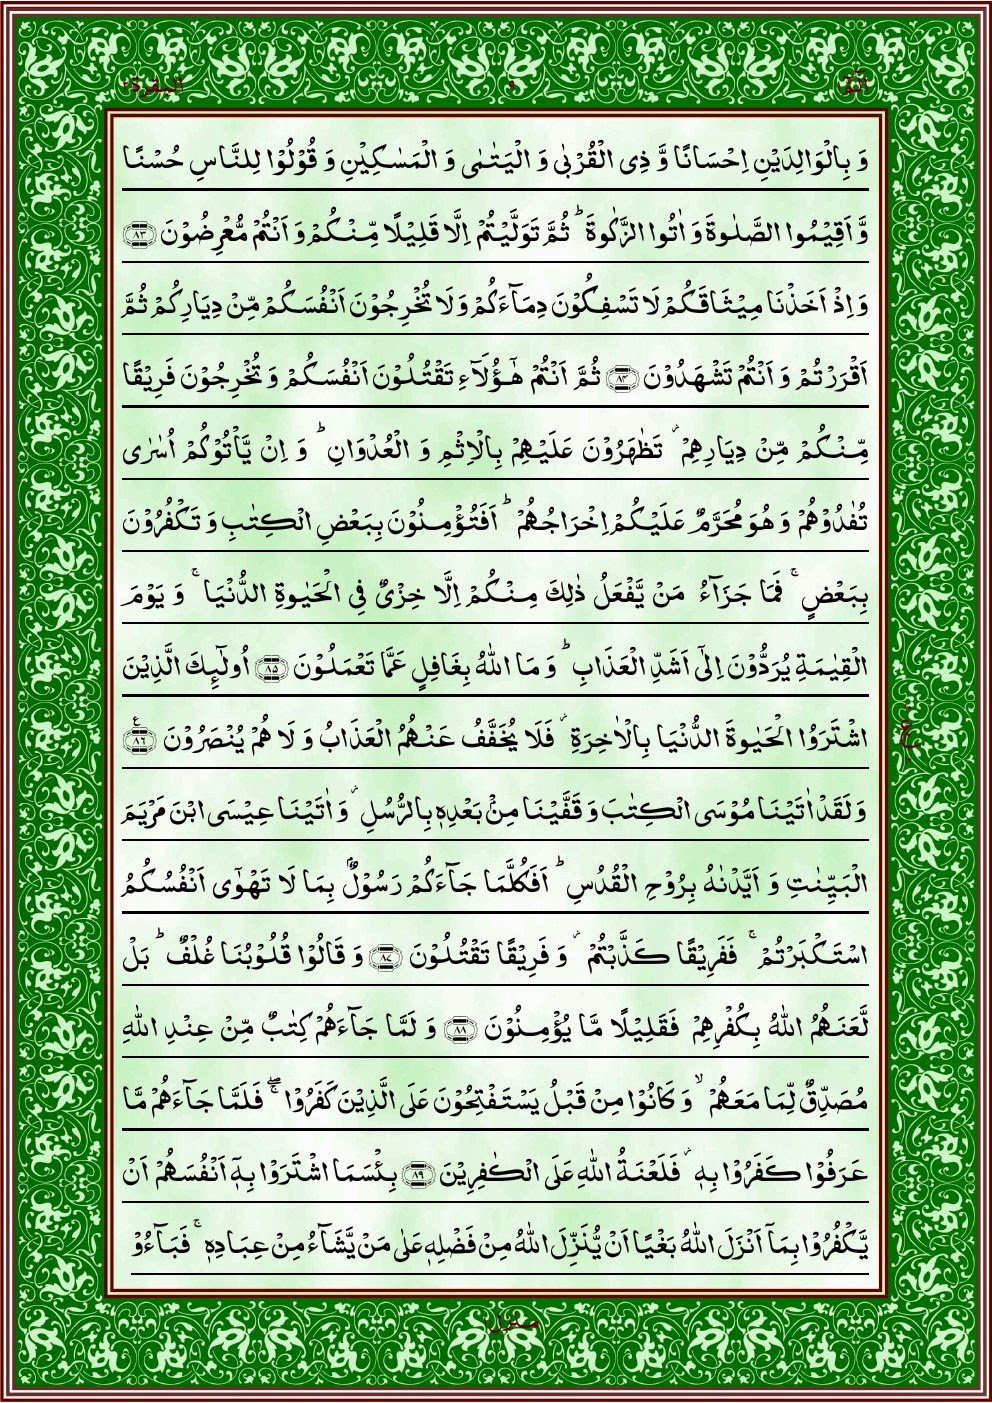 الٓمّٓ ۱ ۹ البقرة ۲
وَ بِالۡوَالِدَیۡنِ اِحۡسَانًا وَّ ذِی الۡقُرۡبٰی وَ الۡیَتٰمٰی وَ الۡمَسٰکِیۡنِ وَ قُوۡلُوۡا لِلنَّاسِ حُسۡنًا
وَّ اَقِیۡمُوا الصَّلٰوۃَ وَ اٰتُوا الزَّکٰوۃَ ؕ ثُمَّ تَوَلَّیۡتُمۡ اِلَّا قَلِیۡلًا مِّنۡکُمۡ وَ اَنۡتُمۡ مُّعۡرِضُوۡنَ ﴿۸۳﴾
وَ اِذۡ اَخَذۡنَا مِیۡثَاقَکُمۡ لَا تَسۡفِکُوۡنَ دِمَآءَکُمۡ وَ لَا تُخۡرِجُوۡنَ اَنۡفُسَکُمۡ مِّنۡ دِیَارِکُمۡ ثُمَّ
اَقۡرَرۡتُمۡ وَ اَنۡتُمۡ تَشۡهَدُوۡنَ ﴿۸۴﴾ ثُمَّ اَنۡتُمۡ هٰۤؤُلَآءِ تَقۡتُلُوۡنَ اَنۡفُسَکُمۡ وَ تُخۡرِجُوۡنَ فَرِیۡقًا
مِّنۡکُمۡ مِّنۡ دِیَارِهِمۡ ۫ تَظٰهَرُوۡنَ عَلَیۡهِمۡ بِالۡاِثۡمِ وَ الۡعُدۡوَانِ ؕ وَ اِنۡ یَّاۡتُوۡکُمۡ اُسٰرٰی
تُفٰدُوۡهُمۡ وَ هُوَ مُحَرَّمٌ عَلَیۡکُمۡ اِخۡرَاجُهُمۡ ؕ اَفَتُؤۡمِنُوۡنَ بِبَعۡضِ الۡکِتٰبِ وَ تَکۡفُرُوۡنَ
بِبَعۡضٍ ۚ فَمَا جَزَآءُ مَنۡ یَّفۡعَلُ ذٰلِکَ مِنۡکُمۡ اِلَّا خِزۡیٌ فِی الۡحَیٰوۃِ الدُّنۡیَا ۚ وَ یَوۡمَ
الۡقِیٰمَۃِ یُرَدُّوۡنَ اِلٰۤی اَشَدِّ الۡعَذَابِ ؕ وَ مَا اللّٰهُ بِغَافِلٍ عَمَّا تَعۡمَلُوۡنَ ﴿۸۵﴾ اُولٰٓئِکَ الَّذِیۡنَ
اشۡتَرَوُا الۡحَیٰوۃَ الدُّنۡیَا بِالۡاٰخِرَۃِ ۫ فَلَا یُخَفَّفُ عَنۡهُمُ الۡعَذَابُ وَ لَا هُمۡ یُنۡصَرُوۡنَ ﴿۸۶﴾ ع
وَ لَقَدۡ اٰتَیۡنَا مُوۡسَی الۡکِتٰبَ وَ قَفَّیۡنَا مِنۡۢ بَعۡدِهٖ بِالرُّسُلِ ۫ وَ اٰتَیۡنَا عِیۡسَی ابۡنَ مَرۡیَمَ
الۡبَیِّنٰتِ وَ اَیَّدۡنٰهُ بِرُوۡحِ الۡقُدُسِ ؕ اَفَکُلَّمَا جَآءَکُمۡ رَسُوۡلٌۢ بِمَا لَا تَهۡوٰۤی اَنۡفُسُکُمُ
اسۡتَکۡبَرۡتُمۡ ۚ فَفَرِیۡقًا کَذَّبۡتُمۡ ۫ وَ فَرِیۡقًا تَقۡتُلُوۡنَ ﴿۸۷﴾ وَ قَالُوۡا قُلُوۡبُنَا غُلۡفٌ ؕ بَلۡ
لَّعَنَهُمُ اللّٰهُ بِکُفۡرِهِمۡ فَقَلِیۡلًا مَّا یُؤۡمِنُوۡنَ ﴿۸۸﴾ وَ لَمَّا جَآءَهُمۡ کِتٰبٌ مِّنۡ عِنۡدِ اللّٰهِ
مُصَدِّقٌ لِّمَا مَعَهُمۡ ۙ وَ کَانُوۡا مِنۡ قَبۡلُ یَسۡتَفۡتِحُوۡنَ عَلَی الَّذِیۡنَ کَفَرُوۡا ۚۖ فَلَمَّا جَآءَهُمۡ مَّا
عَرَفُوۡا کَفَرُوۡا بِهٖ ۫ فَلَعۡنَۃُ اللّٰهِ عَلَی الۡکٰفِرِیۡنَ ﴿۸۹﴾ بِئۡسَمَا اشۡتَرَوۡا بِهٖۤ اَنۡفُسَهُمۡ اَنۡ
یَّکۡفُرُوۡا بِمَاۤ اَنۡزَلَ اللّٰهُ بَغۡیًا اَنۡ یُّنَزِّلَ اللّٰهُ مِنۡ فَضۡلِهٖ عَلٰی مَنۡ یَّشَآءُ مِنۡ عِبَادِهٖ ۚ فَبَآءُوۡ
منزل ۱